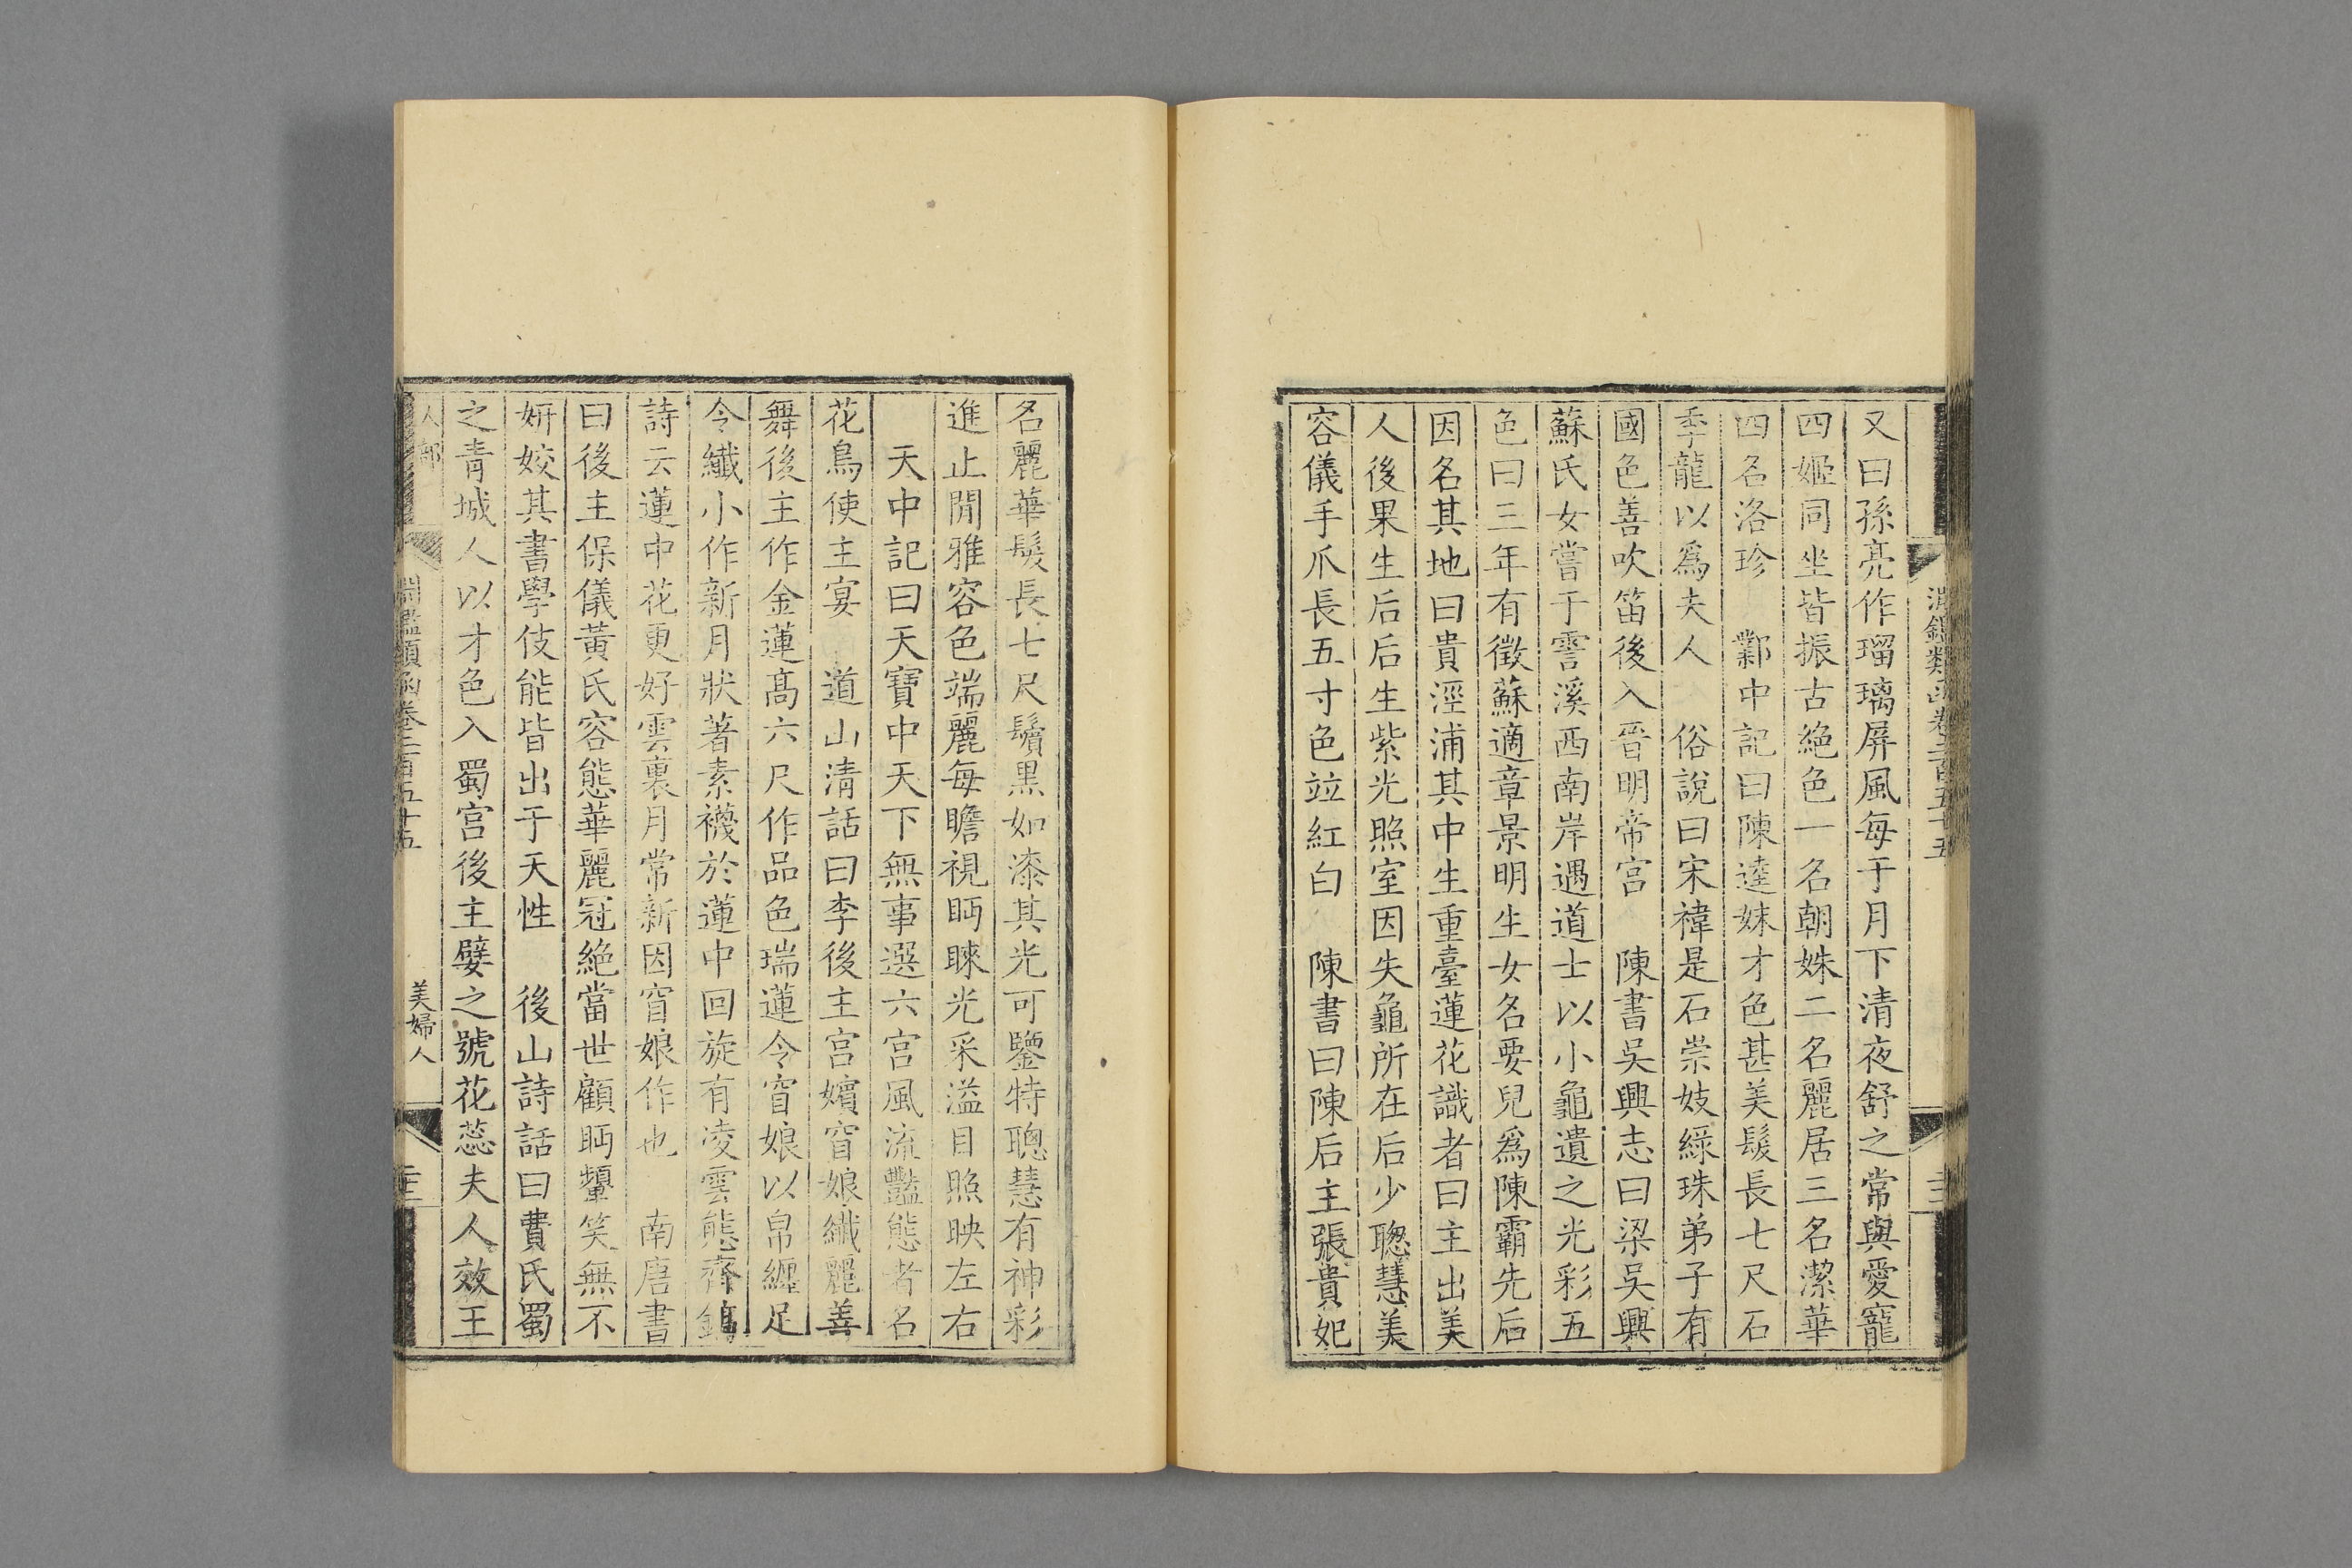 淵鑑類函卷二百五十五
又曰孫亮作瑠璃屏風每于月下清夜舒之常與愛寵
四姬同坐皆振古絕色一名朝姝二名麗居三名潔華
四名洛珍　鄴中記曰陳逵妹才色甚美髮長七尺石
季龍以爲夫人　俗說曰宋褘是石崇妓綠珠弟子有
國色善吹笛後入晉明帝宮　陳書吳興志曰梁吳興
蘇氏女嘗于霅溪西南岸遇道士以小龜遺之光彩五
色曰三年有徵蘇適章景明生女名要兒爲陳霸先后
因名其地曰貴涇浦其中生重臺蓮花識者曰主出美
人後果生后后生紫光照室因失龜所在后少聰慧美
容儀手爪長五寸色竝紅白　陳書曰陳后主張貴妃
名麗華髮長七尺鬒黑如漆其光可鑒特聰慧有神彩
進止閒雅容色端麗每瞻視眄睞光采溢目照映左右
天中記曰天寶中天下無事選六宮風流豔態者名
花鳥使主宴　道山清話曰李後主宮嬪窅娘纖麗善
舞後主作金蓮高六尺作品色瑞蓮令窅娘以帛纏足
令纖小作新月狀著素襪於蓮中回旋有凌雲態齊鎬
詩云蓮中花更好雲裏月常新因窅娘作也　南唐書
曰後主保儀黃氏容態華麗冠絕當世顧眄顰笑無不
妍姣其書學伎能皆出于天性　後山詩話曰費氏蜀
之青城人以才色入蜀宮後主嬖之號花蕊夫人效王
人部
淵鑑類函卷二百五十五
美婦人